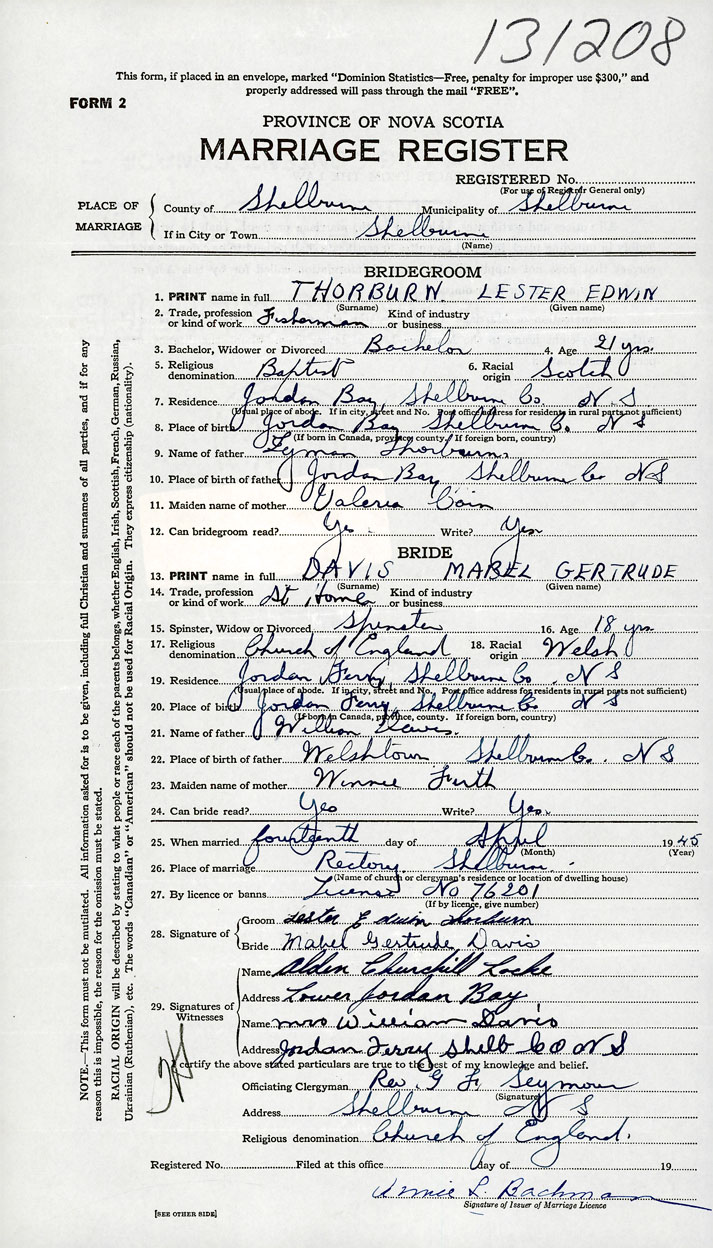 131208
This form, if placed in an envelope, marked "Dominion Statistics—Free, penalty for improper use $300," and
properly addressed will pass through the mail "FREE".
FORM 2
PROVINCE OF NOVA SCOTIA
MARRIAGE REGISTER
REGISTERED No.
(For use of Registrar General only)
PLACE OF MARRIAGE
County of Shelburne Municipality of Shelburne
If in City or Town Shelburne
(Name)
BRIDEGROOM
1. PRINT name in full THORBURN LESTER EDWIN
(Surname) (Given name)
2. Trade, profession or kind of work Fisherman Kind of industry or business
3. Bachelor, Widower or Divorced Bachelor 4. Age 21 yrs.
5. Religious denomination Baptist 6. Racial origin Scotch
7. Residence Jordan Bay, Shelburne Co. N.S
(Usual place of abode. If in city, street and No. Post office address for residents in rural parts not sufficient)
8. Place of birth Jordan Bay Shelburne Co. N S
(If born in Canada, province, county. If foreign born, country)
9. Name of father Lyman Thorburn
10. Place of birth of father Jordan Bay Shelburne Co NS
11. Maiden name of mother Valeria
12. Can bridegroom read? Yes Write? Yes
BRIDE
13. PRINT name in full DAVIS MABEL GERTRUDE
(Surname) (Given name)
14. Trade, profession or kind of work At Home Kind of industry or business
15. Spinster, Widow or Divorced Spinster 16. Age 18 yrs.
17. Religious denomination Church of England 18. Racial origin Welsh
19. Residence Jordan Ferry Shelburne Co. N S
(Usual place of abode. If in city, street and No. Post office address for residents in rural parts not sufficient)
20. Place of birth Jordan Ferry, Shelburne Co N S
(If born in Canada, province, county. If foreign born, country)
21. Name of father William Davis.
22. Place of birth of father Welshtown Shelburne Co. N S
23. Maiden name of mother Winnie Firth
24. Can bride read? Yes Write? Yes.
25. When married fourteenth day of April 1945
(Month) (Year)
26. Place of marriage Rectory Shelburne
(Name of church or clergyman's residence or location of dwelling house)
27. By licence or banns License No 76201
(If by licence, give number)
28. Signature of
Groom Lester Edwin Thorburn
Bride Mabel Gertrude Davis
29. Signatures of Witnesses
Name Alden Churchill Locke
Address Lower Jordan Bay
Name Mrs William Davis
Address Jordan Ferry Shelb Co N S
I certify the above stated particulars are true to the best of my knowledge and belief.
Officiating Clergyman Rev. G F Seymour
(Signature)
Address Shelburne N S
Religious denomination Church of England.
Registered No. Filed at this office day of 19
Annie L. Bachman
Signature of Issuer of Marriage Licence
[SEE OTHER SIDE]
NOTE.—This form must not be mutilated. All information asked for is to be given, including full Christian and surnames of all parties, and if for any
reason this is impossible, the reason for the omission must be stated.
RACIAL ORIGIN will be described by stating to what people or race each of the parents belongs, whether English, Irish, Scottish, French, German, Russian,
Ukrainian (Ruthenian), etc. The words "Canadian" or "American" should not be used for Racial Origin. They express citizenship (nationality).